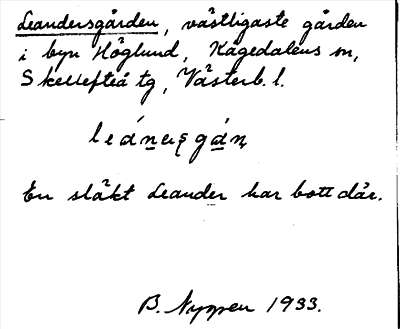 Leandersgården, västligaste gården
i byn Höglund, Kågedalens sn,
Skellefteå tg, Västerb. l.
En släkt Leander har bott där.
B. 1933.